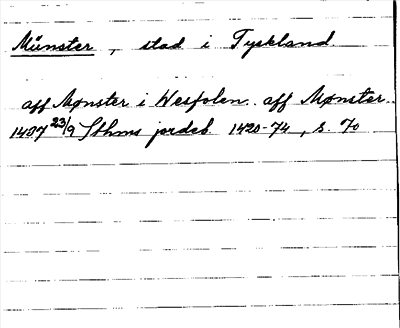 Münster, stad i Tyskland.
aff Mønster i Wesfolen. aff Mønster..
1427 23/9 Sthms jordeb. 1420-74, s. 70